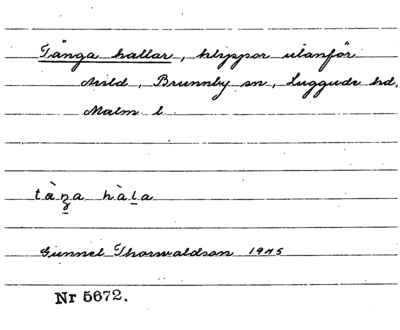 Tånga hallar, klippor utanför
Arild, Brunnby sn, Luggude hd,
Malm l.
tàŋa hàḷa
Gunnel Thorwaldson 1945
Nr 5672.